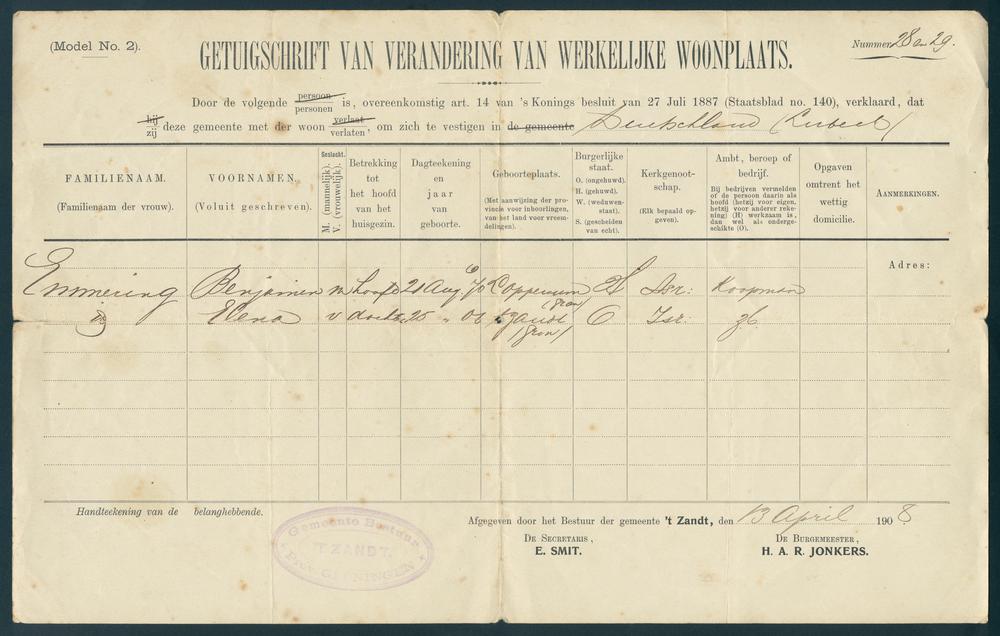 (Model No. 2).
Nummer 28 en 29.
GETUIGSCHRIFT VAN VERANDERING VAN WERKELIJKE WOONPLAATS.
Door de volgende persoon personen is, overeenkomstig art. 14 van 's Konings besluit van 27 Juli 1887 (Staatsblad no. 140), verklaard, dat
hij zij deze gemeente met der woon verlaat verlaten, om zich te vestigen in de gemeente Deutschland (Lubeck)
FAMILIENAAM.
(Familienaam der vrouw).
VOORNAMEN.
(Voluit geschreven).
Geslacht.
M. (mannelijk).
V. (vrouwelijk).
Betrekking
tot
het hoofd
van het
huisgezin.
Dagteekening
en
jaar
van
geboorte.
Geboorteplaats.
(Met aanwijzing der pro-
vincie voor inboorlingen,
van het land voor vreem-
delingen).
Burgerlijke
staat.
O. (ongehuwd).
H. (gehuwd).
W. (weduwen-
staat).
S. (gescheiden
van echt).
Kerkgenoot-
schap.
(Elk bepaald op-
geven).
Ambt, beroep of
bedrijf.
Bij bedrijven vermelden
of de persoon daarin als
hoofd (hetzij voor eigen,
hetzij voor anderer reke-
ning) (H) werkzaam is,
dan wel als onderge-
schikte (O).
Opgaven
omtrent het
wettig
domicilie.
AANMERKINGEN.
Adres:
Emmering Benjamin m hoofd 21 Aug 70 Loppersum (Gron) Isr: Koopman
id Elena v docht. 25 " 06 't Zandt (Gron) O Isr: zb.
Handteekening van de belanghebbende.
Gemeente Bestuur
'T ZANDT.
Prov. GRONINGEN
Afgegeven door het Bestuur der gemeente 't Zandt, den 13 April 1908.
DE SECRETARIS,
E. SMIT.
DE BURGEMEESTER,
H. A. R. JONKERS.